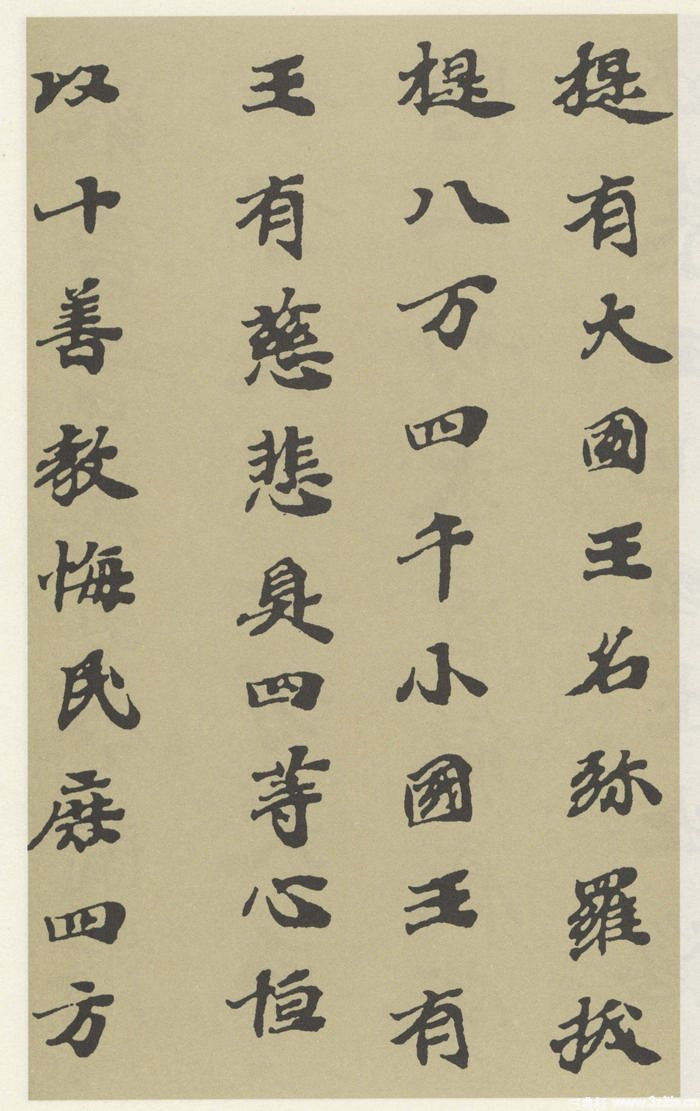 提有大國王名弥羅拔
提八万四千小國王有
王有慈悲具四等心恒
以十善教悔民庶四方